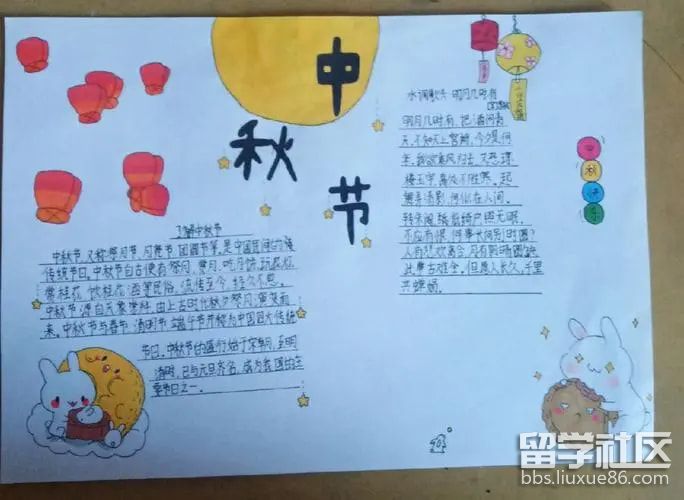 中
秋
节
了解中秋节
中秋节,又称祭月节、月光节、团圆节等,是中国民间的
传统节日。中秋节自古便有祭月、赏月、吃月饼、玩花灯、
赏桂花、饮桂花酒等民俗,流传至今,经久不息。
中秋节源自天象崇拜,由上古时代秋夕祭月演变而
来。中秋节与春节、清明节、端午节并称为中国四大传统
节日。中秋节的盛行始于宋朝,至明
清时,已与元旦齐名,成为我国的主
要节日之一。
水调歌头 明月几时有
明月几时有,把酒问青
天,不知天上宫阙,今夕是何
年,我欲乘风归去,又恐琼
楼玉宇,高处不胜寒,起
舞弄清影,何似在人间。
转朱阁,低绮户,照无眠。
不应有恨,何事长向别时圆?
人有悲欢离合,月有阴晴圆缺,
此事古难全。但愿人长久,千里
共婵娟。
中
秋
快
乐
留学社区
bbs.liuxue86.com